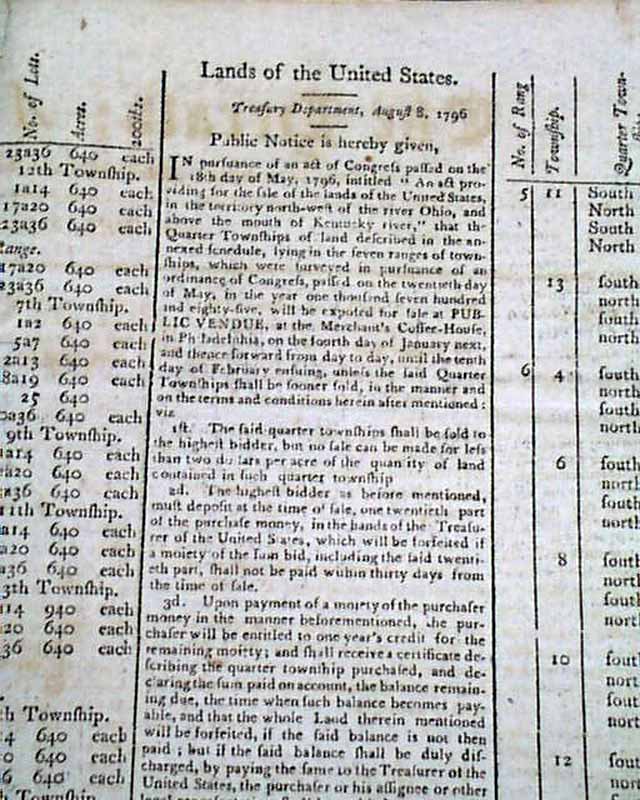 No. of Lots.
Acres.
23a36 640 each
12th Township.
1a14 640 each
17a20 640 each
23a36 640 each
Range.
17a20 640 each
23a36 640 each
7th Township.
1a2 640 each
5a7 640 each
2a13 640 each
8a19 640 each
25 640
a36 640 each
9th Township.
1a14 640 each
a20 640 each
a36 640 each
11th Township.
a14 640 each
a20 640 each
a36 640 each
3th Township.
a14 940 each
a20 640 each
36 640 each
h Township.
4 640 each
0 640 each
6 640 each
Township.
Lands of the United States.
Treasury Department, August 8, 1796
Public Notice is hereby given,
IN pursuance of an act of Congreſs paſſed on the
18th day of May, 1796, intitled “ An act pro-
viding for the ſale of the lands of the United States,
in the territory north-weſt of the river Ohio, and
above the mouth of Kentucky river,” that the
Quarter Townſhips of land deſcribed in the an-
nexed ſchedule, lying in the ſeven ranges of town-
ſhips, which were ſurveyed in purſuance of an
ordinance of Congreſs, paſſed on the twentieth day
of May, in the year one thouſand ſeven hundred
and eighty-five, will be expoſed for ſale at PUB-
LIC VENDUE, at the Merchant's Coffee-Houſe,
in Philadelphia, on the fourth day of January next,
and thence forward from day to day, until the tenth
day of February enſuing, unleſs the ſaid Quarter
Townſhips ſhall be ſooner ſold, in the manner and
on the terms and conditions herein after mentioned :
viz
1ſt. The ſaid quarter townſhips ſhall be ſold to
the higheſt bidder, but no ſale can be made for leſs
than two dollars per acre of the quantity of land
contained in ſuch quarter townſhip
2d. The higheſt bidder as before mentioned,
muſt depoſit at the time of ſale, one twentieth part
of the purchaſe money, in the hands of the Treaſu-
rer of the United States, which will be forfeited if
a moiety of the ſum bid, including the ſaid twenti-
eth part, ſhall not be paid within thirty days from
the time of ſale.
3d. Upon payment of a moiety of the purchaſer
money in the manner beforementioned, the pur-
chaſer will be entitled to one year's credit for the
remaining moiety; and ſhall receive a certificate de-
ſcribing the quarter townſhip purchaſed, and de-
claring the ſum paid on account, the balance remain-
ing due, the time when ſuch balance becomes pay-
able, and that the whole Land therein mentioned
will be forfeited, if the ſaid balance is not then
paid ; but if the ſaid balance ſhall be duly diſ-
charged, by paying the ſame to the Treaſurer of the
United States, the purchaſer or his aſſignee or other
No. of Rang
Township.
Quarter Town-
5 11 South
North
South
North
13 south
north
south
north
6 4 south
north
south
north
6 south
north
south
north
8 south
north
south
north
10 south
north
south
north
12 south
north